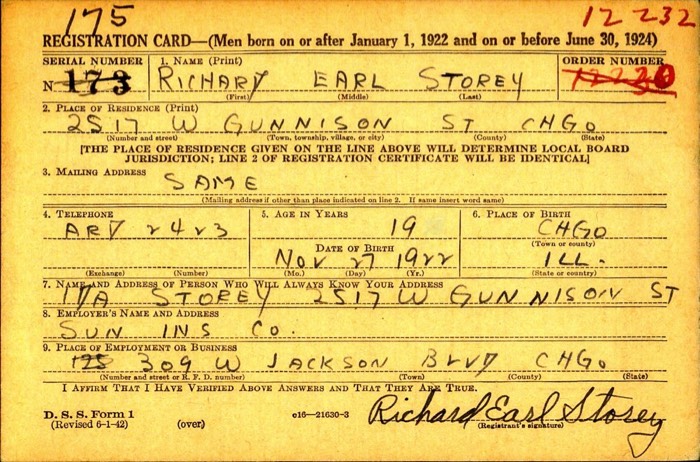 175 12 232
REGISTRATION CARD—(Men born on or after January 1, 1922 and on or before June 30, 1924)
SERIAL NUMBER 1. NAME (Print) ORDER NUMBER
N 173 RICHARD EARL STOREY 12230
(First) (Middle) (Last)
2. PLACE OF RESIDENCE (Print)
2517 W GUNNISON ST CHGO
(Number and street) (Town, township, village, or city) (County) (State)
[THE PLACE OF RESIDENCE GIVEN ON THE LINE ABOVE WILL DETERMINE LOCAL BOARD
JURISDICTION; LINE 2 OF REGISTRATION CERTIFICATE WILL BE IDENTICAL]
3. MAILING ADDRESS
SAME
(Mailing address if other than place indicated on line 2. If same insert word same)
4. TELEPHONE 5. AGE IN YEARS 6. PLACE OF BIRTH
ARD 2423 19 CHGO
DATE OF BIRTH (Town or county)
NOV 27 1922 ILL.
(Exchange) (Number) (Mo.) (Day) (Yr.) (State or country)
7. NAME AND ADDRESS OF PERSON WHO WILL ALWAYS KNOW YOUR ADDRESS
IDA STOREY 2517 W GUNNISON ST
8. EMPLOYER'S NAME AND ADDRESS
SUN INS CO.
9. PLACE OF EMPLOYMENT OR BUSINESS
125 309 W JACKSON BLVD CHGO
(Number and street or R. F. D. number) (Town) (County) (State)
I AFFIRM THAT I HAVE VERIFIED ABOVE ANSWERS AND THAT THEY ARE TRUE.
D. S. S. Form 1
(Revised 6-1-42) (over) c16—21630-3 Richard Earl Storey
(Registrant's signature)